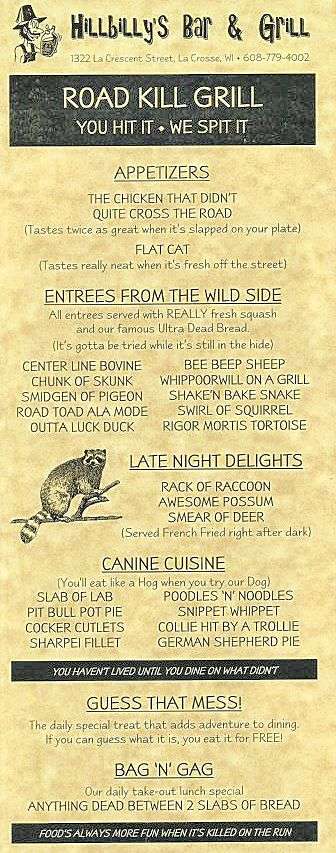 Hillbilly's Bar & Grill
1322 La Crescent Street, La Crosse, WI • 608-779-4002
ROAD KILL GRILL
YOU HIT IT • WE SPIT IT
APPETIZERS
THE CHICKEN THAT DIDN'T
QUITE CROSS THE ROAD
(Tastes twice as great when it's slapped on your plate)
FLAT CAT
(Tastes really neat when it's fresh off the street)
ENTREES FROM THE WILD SIDE
All entrees served with REALLY fresh squash
and our famous Ultra Dead Bread.
(It's gotta be tried while it's still in the hide)
CENTER LINE BOVINE
CHUNK OF SKUNK
SMIDGEN OF PIGEON
ROAD TOAD ALA MODE
OUTTA LUCK DUCK
BEE BEEP SHEEP
WHIPPOORWILL ON A GRILL
SHAKE'N BAKE SNAKE
SWIRL OF SQUIRREL
RIGOR MORTIS TORTOISE
LATE NIGHT DELIGHTS
RACK OF RACCOON
AWESOME POSSUM
SMEAR OF DEER
(Served French Fried right after dark)
CANINE CUISINE
(You'll eat like a Hog when you try our Dog)
SLAB OF LAB
PIT BULL POT PIE
COCKER CUTLETS
SHARPEI FILLET
POODLES 'N' NOODLES
SNIPPET WHIPPET
COLLIE HIT BY A TROLLIE
GERMAN SHEPHERD PIE
YOU HAVEN'T LIVED UNTIL YOU DINE ON WHAT DIDN'T
GUESS THAT MESS!
The daily special treat that adds adventure to dining.
If you can guess what it is, you eat it for FREE!
BAG 'N' GAG
Our daily take-out lunch special
ANYTHING DEAD BETWEEN 2 SLABS OF BREAD
FOOD'S ALWAYS MORE FUN WHEN IT'S KILLED ON THE RUN